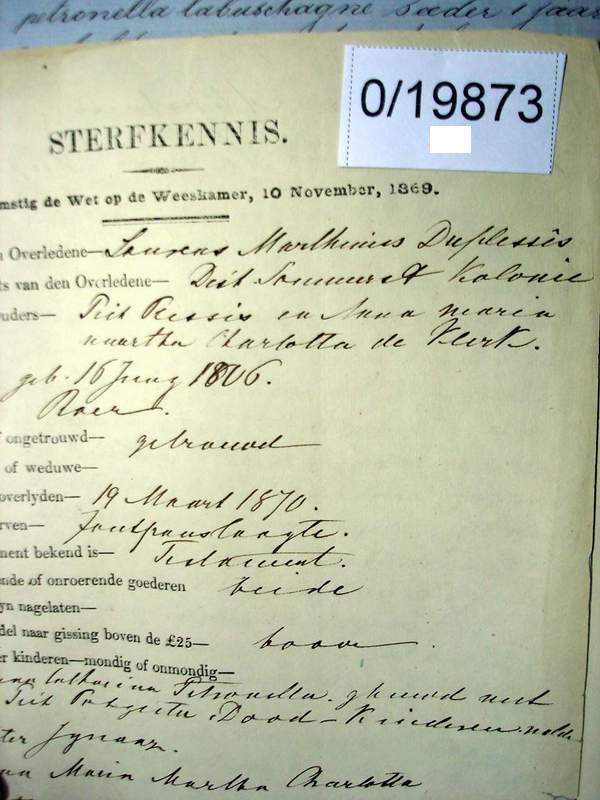 petronella labuschagne
0/19873
STERFKENNIS.
mstig de Wet op de Weeskamer, 10 November, 1869.
n Overledene— Lourens Marthinus Duplessis
ts van den Overledene— Dist Sommerset Kolonie
uders— Piet Plessis en Anna Maria
maartha Charlotta de Klerk.
geb. 16 Juny 1806.
Boer.
f ongetrouwd— getrouwd
of weduwe—
overlyden— 19 Maart 1870.
rven— Zoutpanslaagte.
ment bekend is— Testament.
nde of onroerende goederen beide
yn nagelaten—
del naar gissing boven de £25— boven
er kinderen—mondig of onmondig—
Catharina Petronella. getrouwd met
Piet Potgieter. Dood – Kinderen
ter Ignaaz.
na Maria Martha Charlotta